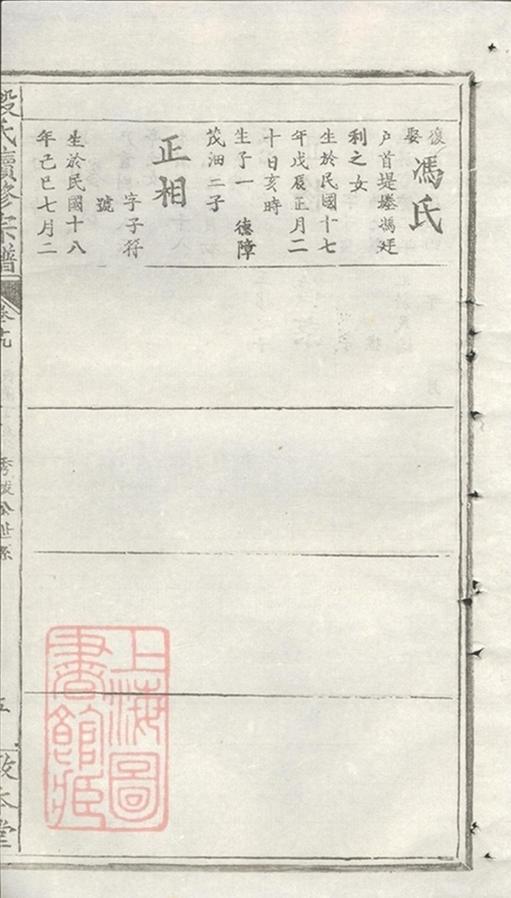 復
娶
馮氏
戶首堤塍馮廷
利之女
生於民國十七
年戊辰正月二
十日亥時
生子一 德障
茂油二子
正相
字子符
號
生於民國十八
年己巳七月二
段氏續修宗譜
卷十九
秀俊公世系
五
敬本堂
上海圖
書館藏